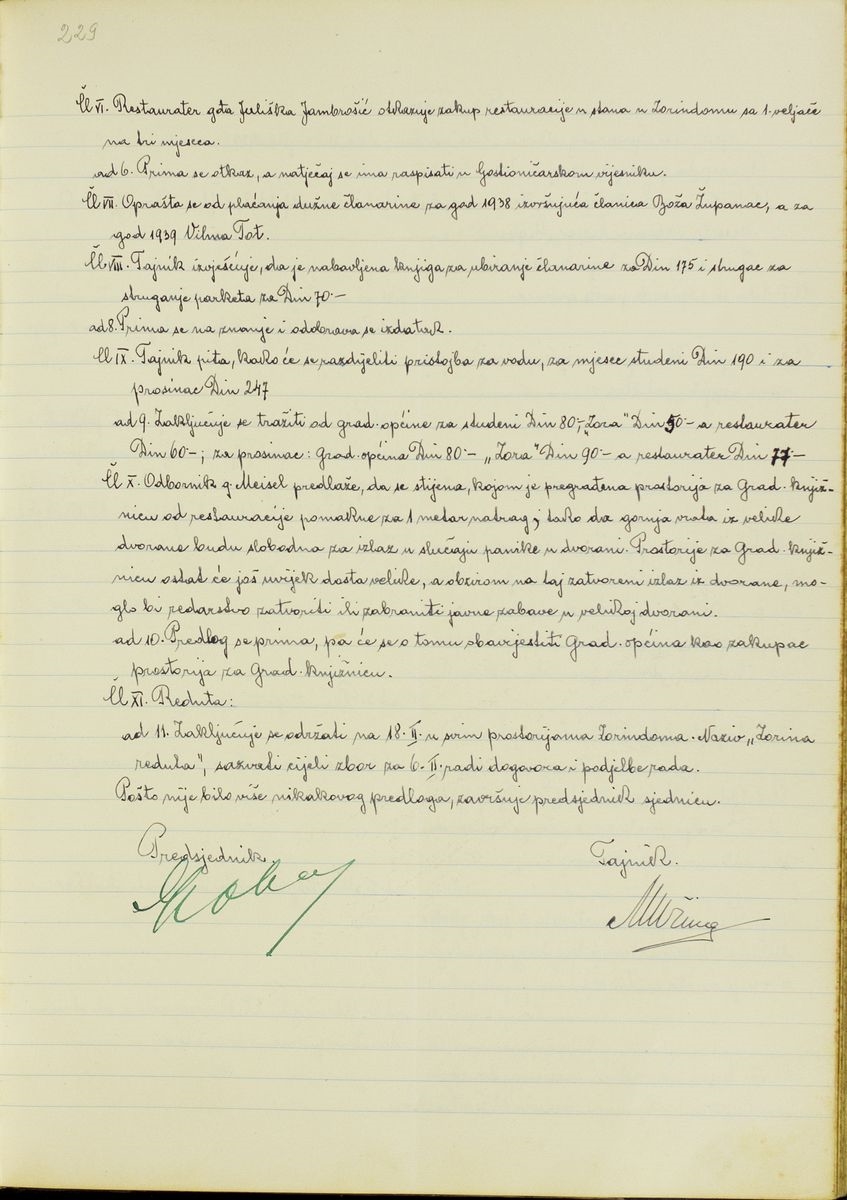 229
Čl VI. Restaurater gđa Juliška Jambrošić otkazuje zakup restauracije u stana u Zorindomu sa 1. veljače
na tri mjeseca.
ad 6. Prima se otkaz, a natječaj se ima raspisati u Gostioničarskom vijesniku.
Čl VII. Oprašta se od plaćanja dužne članarine za god 1938 izvršujuća članica Boža Županac, a za
god 1939 Vilma Tot.
Čl VIII. Tajnik izvješćuje, da je nabavljena knjiga za ubiranje članarine za Din 175 i strugac za
struganje parketa za Din 70·–
ad 8. Prima se na znanje i odobrava se izdatak.
Čl IX. Tajnik pita, kako će se razdijeliti pristojba za vodu, za mjesec studeni Din 190 i za
prosinac Din 247
ad 9. Zaključuje se tražiti od grad. općine za studeni Din 80·–, „Zora" Din 50·– a restaurater
Din 60·–; za prosinac: Grad. općina Din 80·– „Zora" Din 90·– a restaurater Din 77·–
Čl X. Odbornik g. Meisel predlaže, da se stijena, kojom je pregrađena prostorija za Grad. knjiž-
nicu od restauracije pomakne za 1 metar natrag, tako da gornja vrata iz velike
dvorane budu slobodna za izlaz u slučaju panike u dvorani. Prostorije za Grad. knjiž-
nicu ostat će još uvijek dosta velike, a obzirom na taj zatvoreni izlaz iz dvorane, mo-
glo bi redarstvo zatvoriti ili zabraniti javne zabave u velikoj dvorani.
ad 10. Predlog se prima, pa će se o tomu obavijestiti Grad. općina kao zakupac
prostorija za Grad. knjižnicu.
Čl XI. Reduta:
ad 11. Zaključuje se održati na 18. II. u svim prostorijama Zorindoma. Naziv „Zorina
reduta", sazvati cijeli zbor za 6. II. radi dogovora i podjelbe rada.
Pošto nije bilo više nikakovog predloga, završuje predsjednik sjednicu.
Predsjednik. Tajnik.